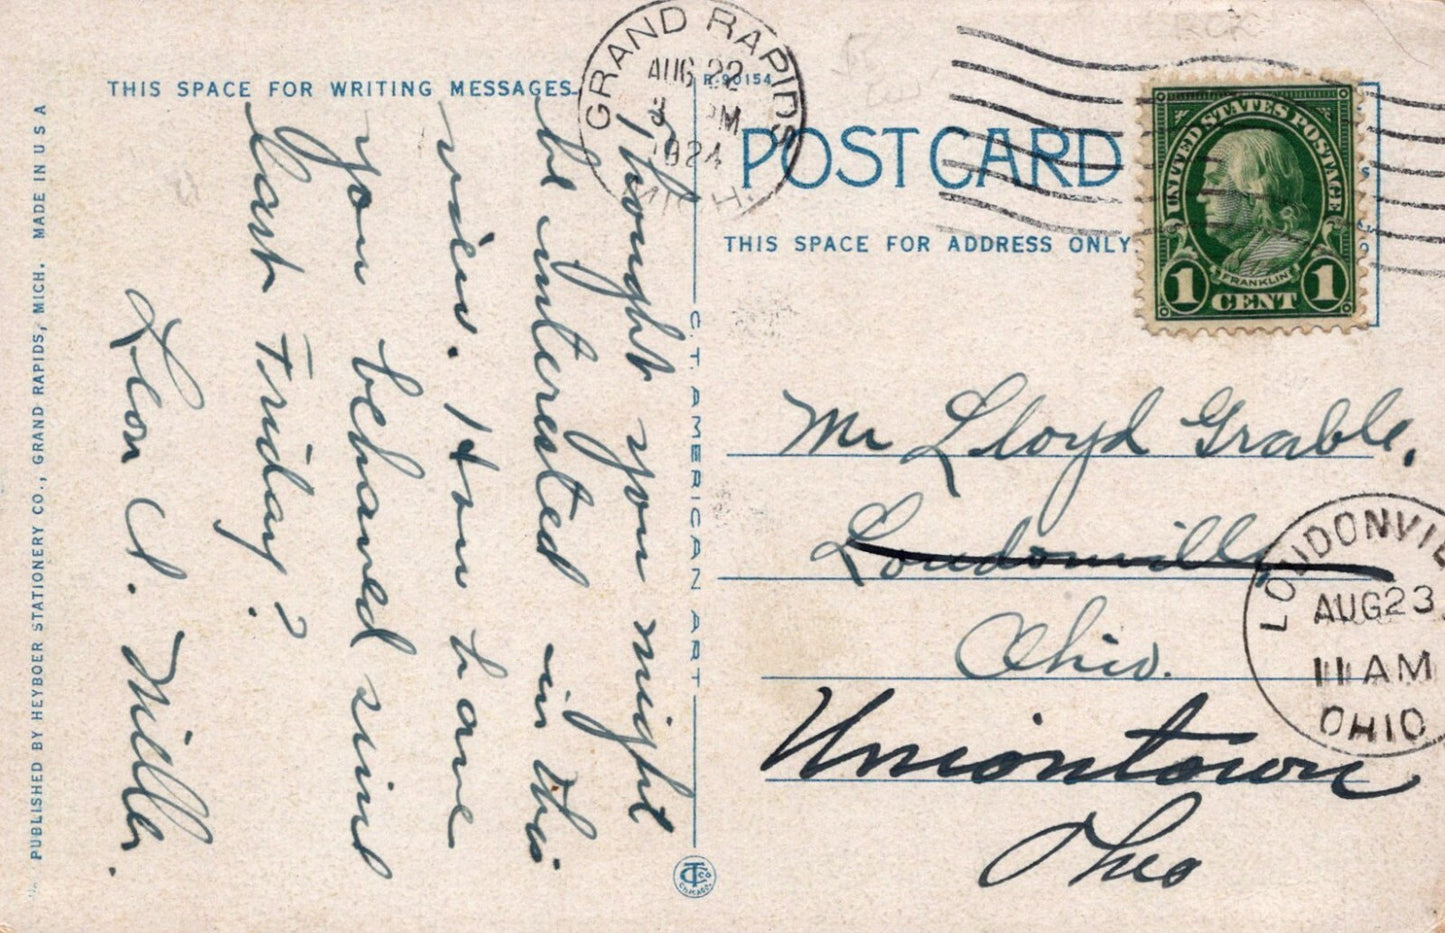 THIS SPACE FOR WRITING MESSAGES
R-90154
POST CARD
THIS SPACE FOR ADDRESS ONLY
GRAND RAPIDS
AUG 22
PM
1924
MICH.
UNITED STATES POSTAGE
FRANKLIN
1 CENT 1
Thought you might
be interested in this
view. How have
you behaved since
last Friday?
Leon A. Miller.
Mr Lloyd Grable.
Loudonville
Ohio.
Uniontown
Ohio
LOUDONVIL
AUG 23
11 AM
OHIO
C. T. AMERICAN ART
CHICAGO
PUBLISHED BY HEYBOER STATIONERY CO., GRAND RAPIDS, MICH. MADE IN U S A